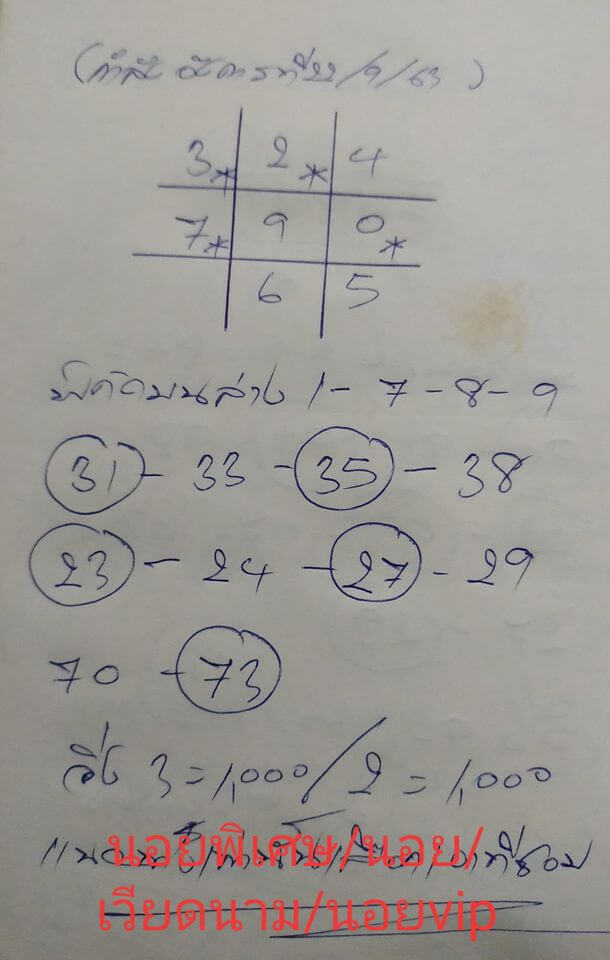 ( อังคารที่ 22/9/63 )
3* 2* 4
7* 9 0*
6 5
บนล่าง 1 - 7 - 8 - 9
31 - 33 - 35 - 38
23 - 24 - 27 - 29
70 - 73
วิ่ง 3 = 1,000 / 2 = 1,000
นอยพิเศษ/นอย/
เวียดนาม/นอยvip